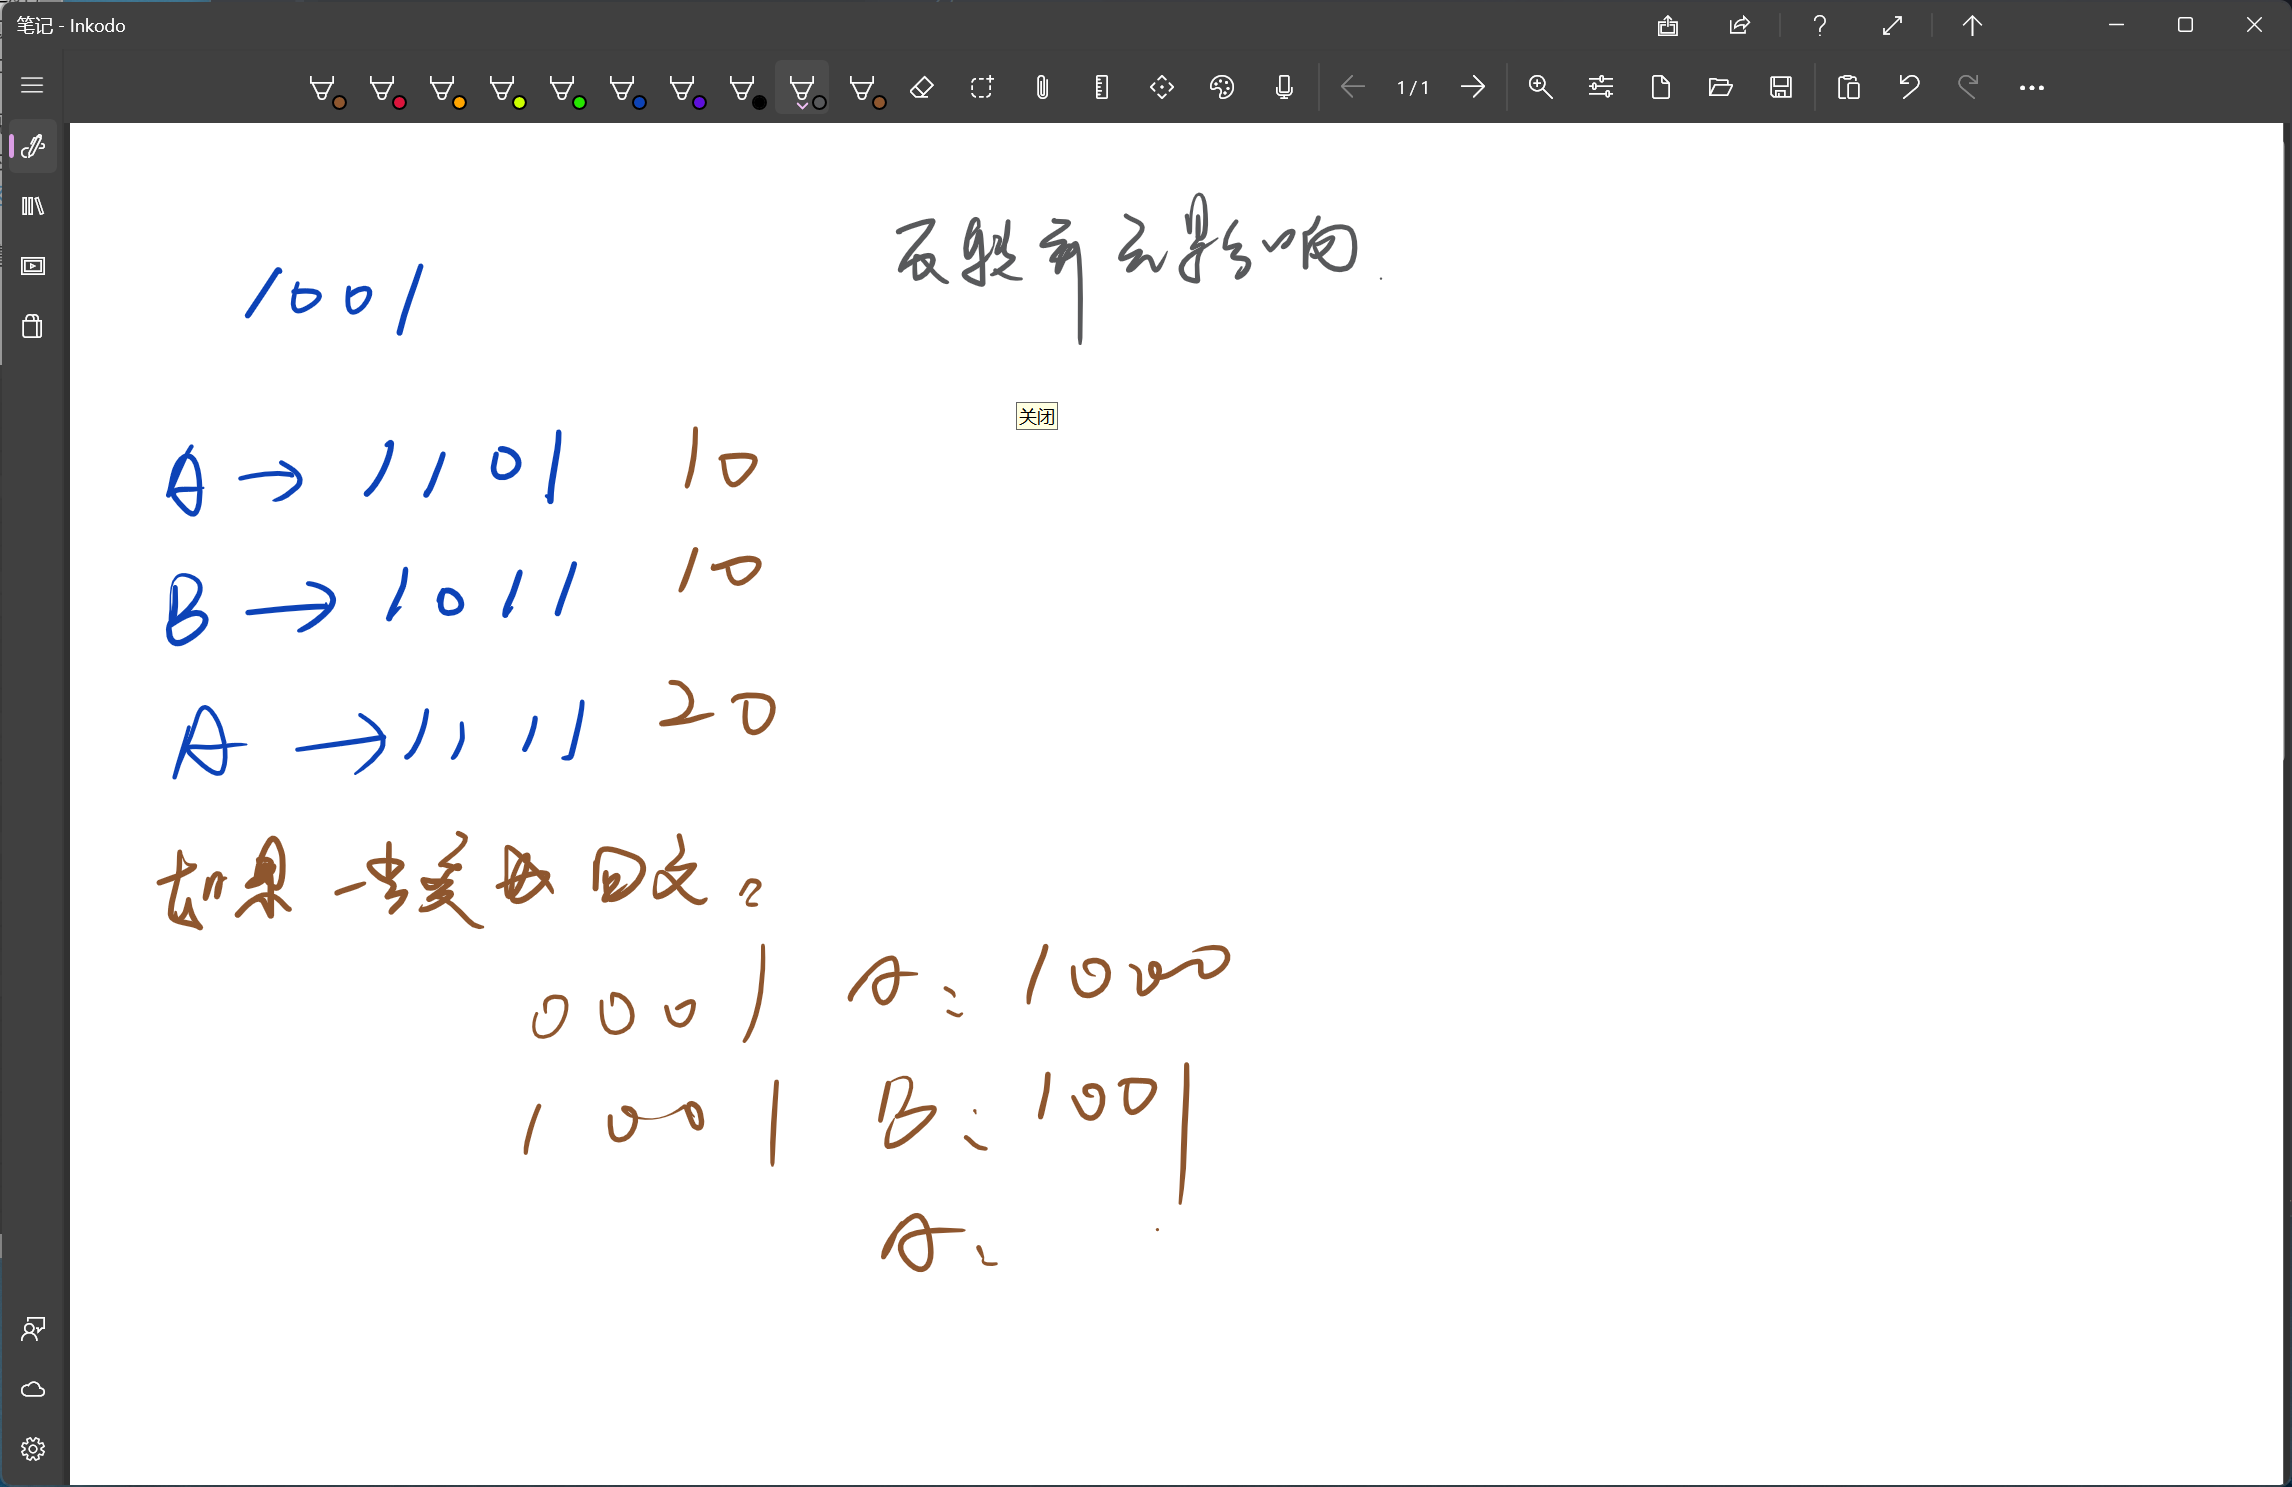 笔记 - Inkodo
1 / 1
反转并无影响.
1001
关闭
A → 1101 10
B → 1011 10
A → 1111 20
如果一步变成回文。
0001 A: 1000
1001 B: 1001
A: